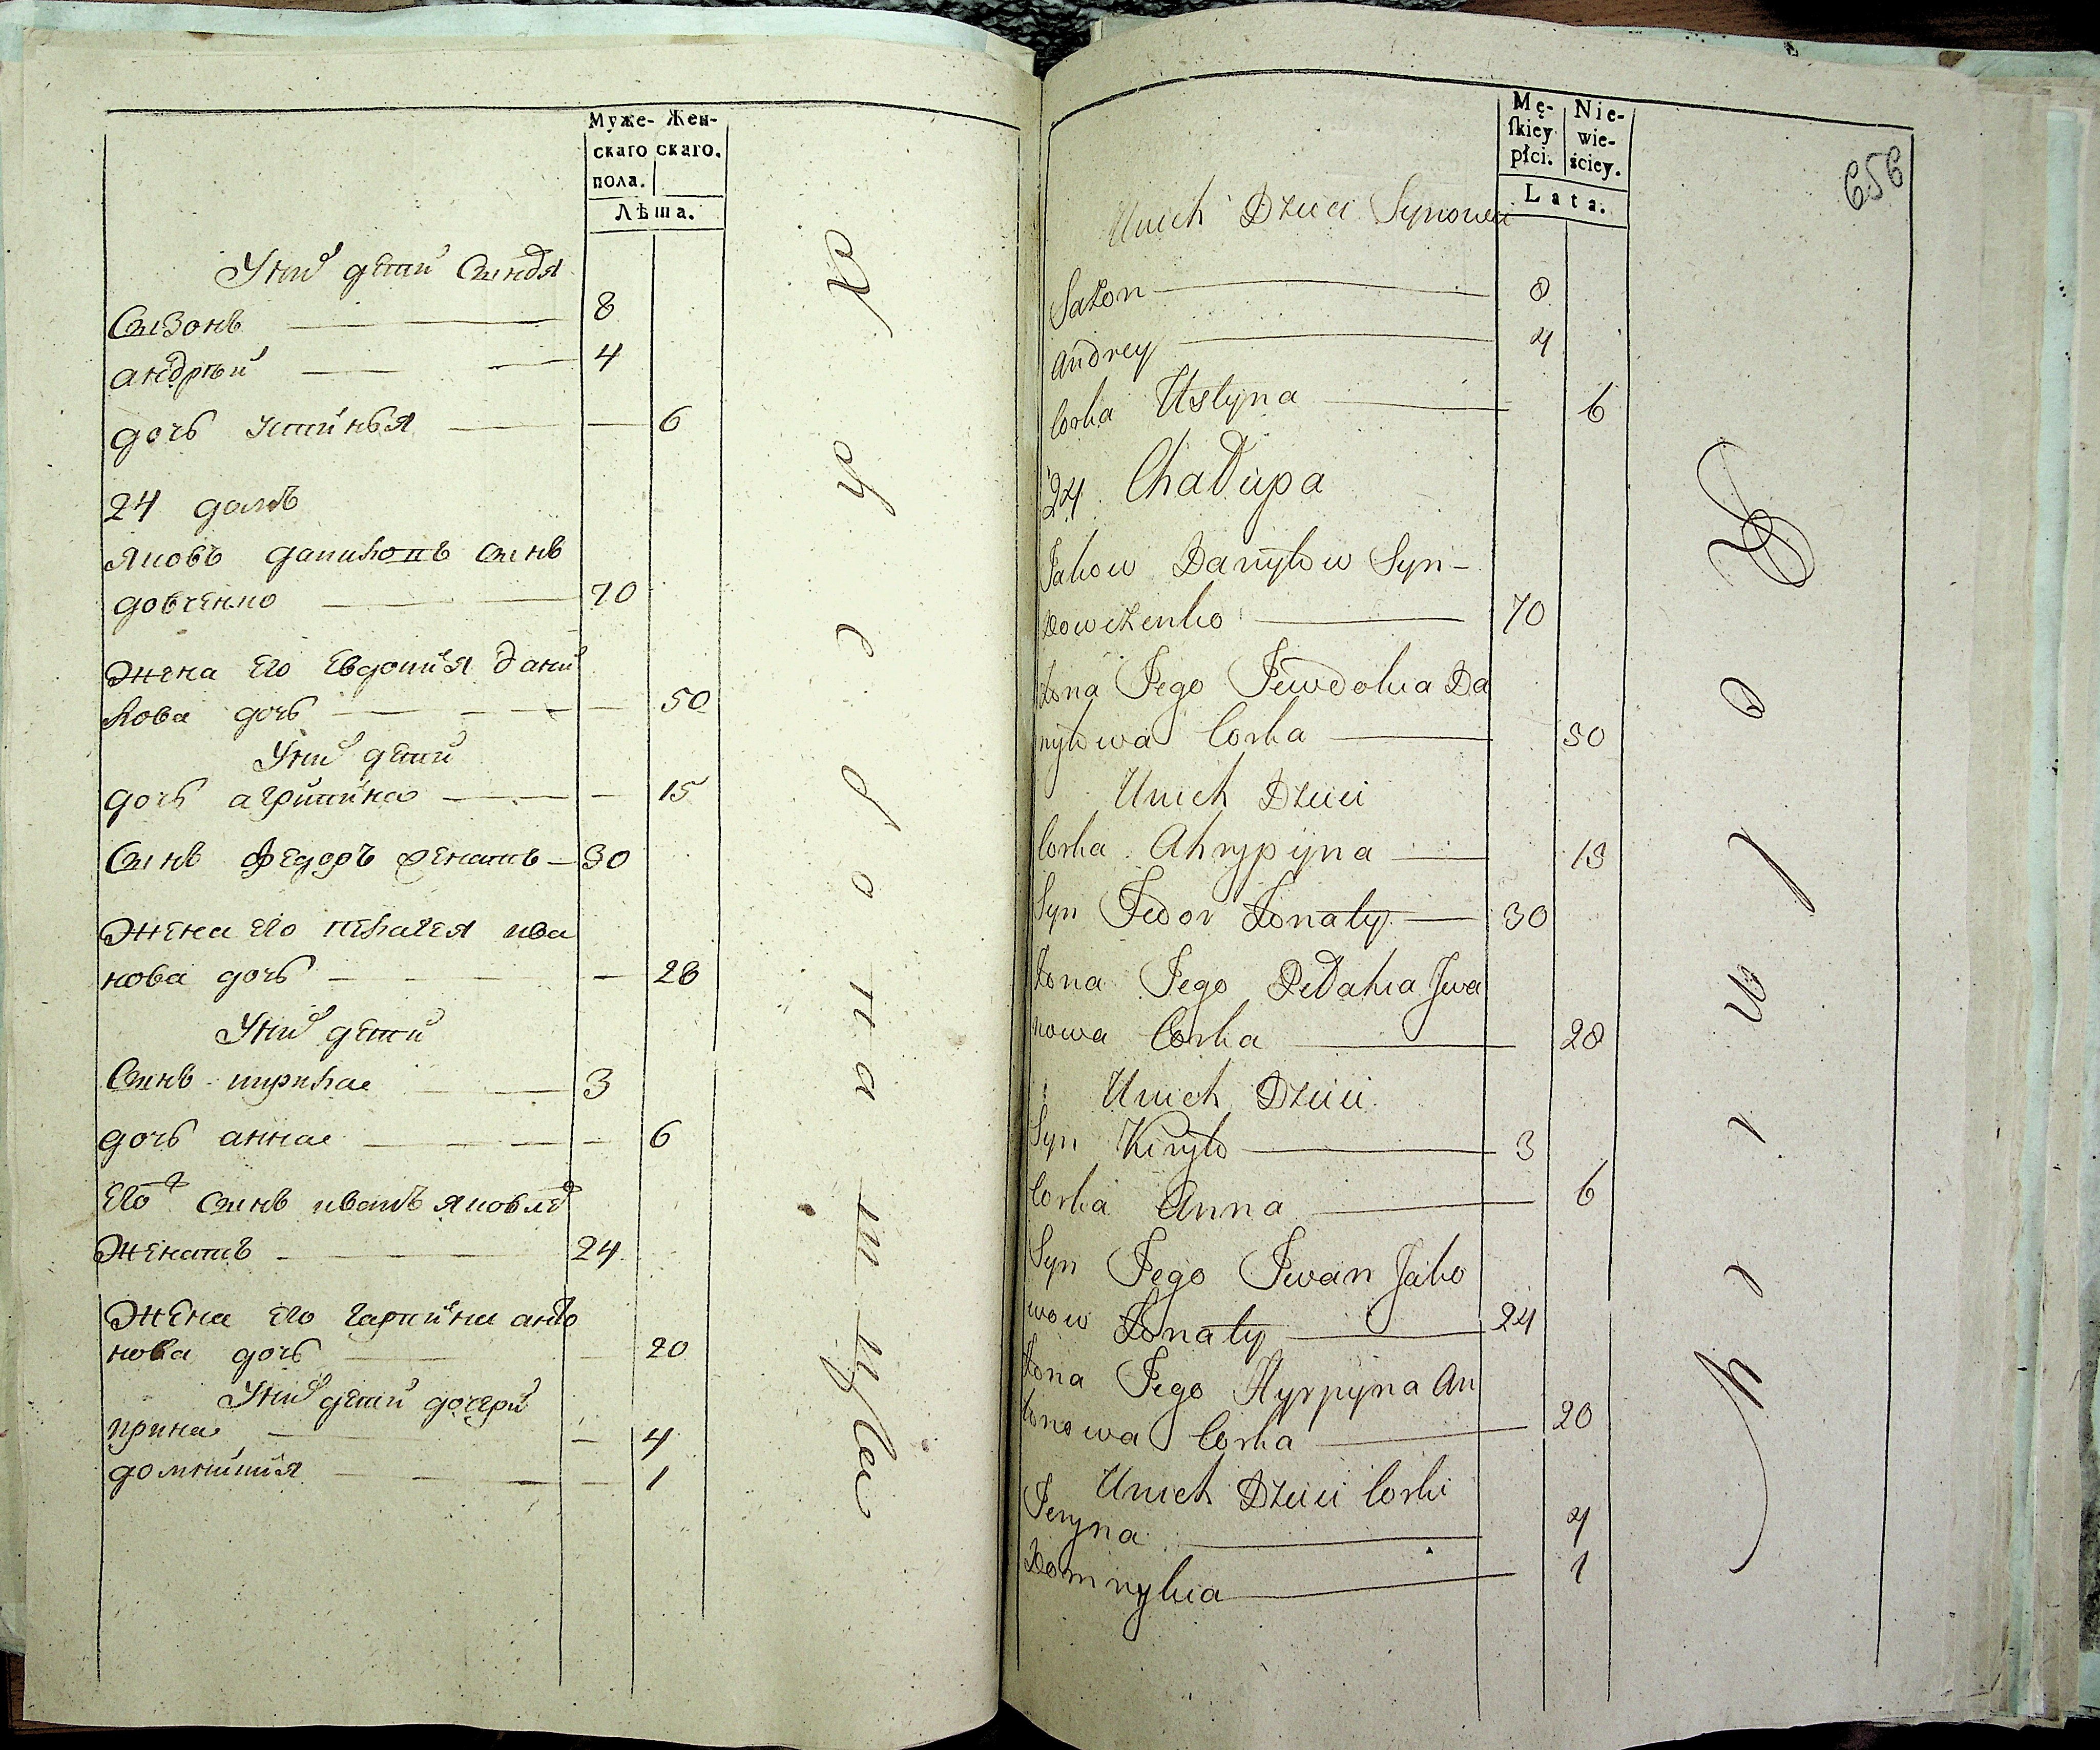 Муже- Жен-
скаго скаго.
пола.
Лѣта.
У них дѣти Синовя
Сизонъ 8
андрѣй 4
дочь устинья 6
24 домъ
Яковъ даниловъ синъ
довченко 70
Жена его Евдокия Дани
лова дочь 50
У них дѣти
дочь агрипина 15
Синъ федоръ женатъ 30
Жена его пелагея ива
нова дочь 28
У них дѣти
Синъ кирила 3
дочь анна 6
его синъ иванъ яковле
Женатъ 24
Жена его гарпина анто
нова дочь 20
У них дѣти дочери
ирина 4
домникия 1
Mę- Nie-
ſkiey wie-
płci. ściey.
Lata.
656
Unich Dzieci Synowie
Sazon 8
Andrey 4
Corka Ustyna 6
24 Chałupa
Jakow Danyłow Syn
Dowczenko 70
Zona Jego Jewdokia Da
nyłowa Corka 50
Unich Dzieci
Corka Ahrypyna 15
Syn Fedor Zonaty 30
Zona Jego Pełahia Jwa
nowa Corka 28
Unich Dzieci
Syn Kiryło 3
Corka Anna 6
Syn Jego Jwan Jako
wow Zonaty 24
Zona Jego Hyrpyna An
tonowa Corka 20
Unich Dzieci Corki
Jeryna 4
Domnykia 1